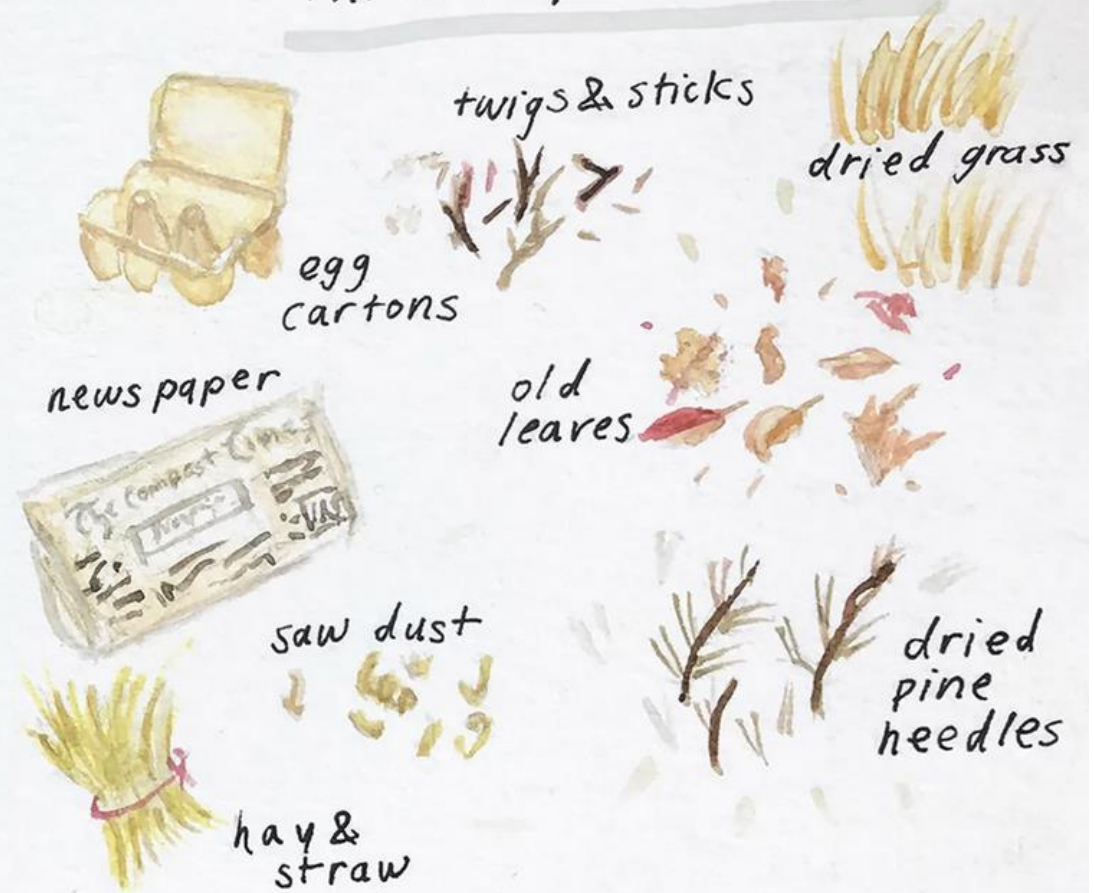 twigs & sticks
dried grass
egg
cartons
newspaper
old
leaves
The Compost Times
saw dust
dried
pine
needles
hay &
straw